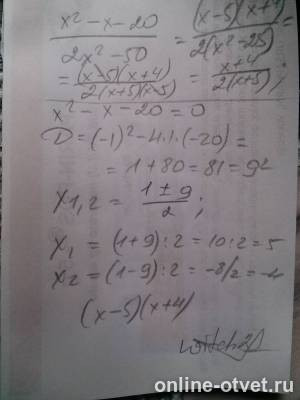 x² - x - 20 / 2x² - 50 = (x-5)(x+4) / 2(x²-25) =
= (x-5)(x+4) / 2(x+5)(x-5) = x+4 / 2(x+5) ;
x² - x - 20 = 0
D = (-1)² - 4·1·(-20) =
= 1 + 80 = 81 = 9²
x1,2 = 1 ± 9 / 2 ;
x₁ = (1+9) : 2 = 10 : 2 = 5
x₂ = (1-9) : 2 = -8/2 = -4
(x-5)(x+4)
online-otvet.ru